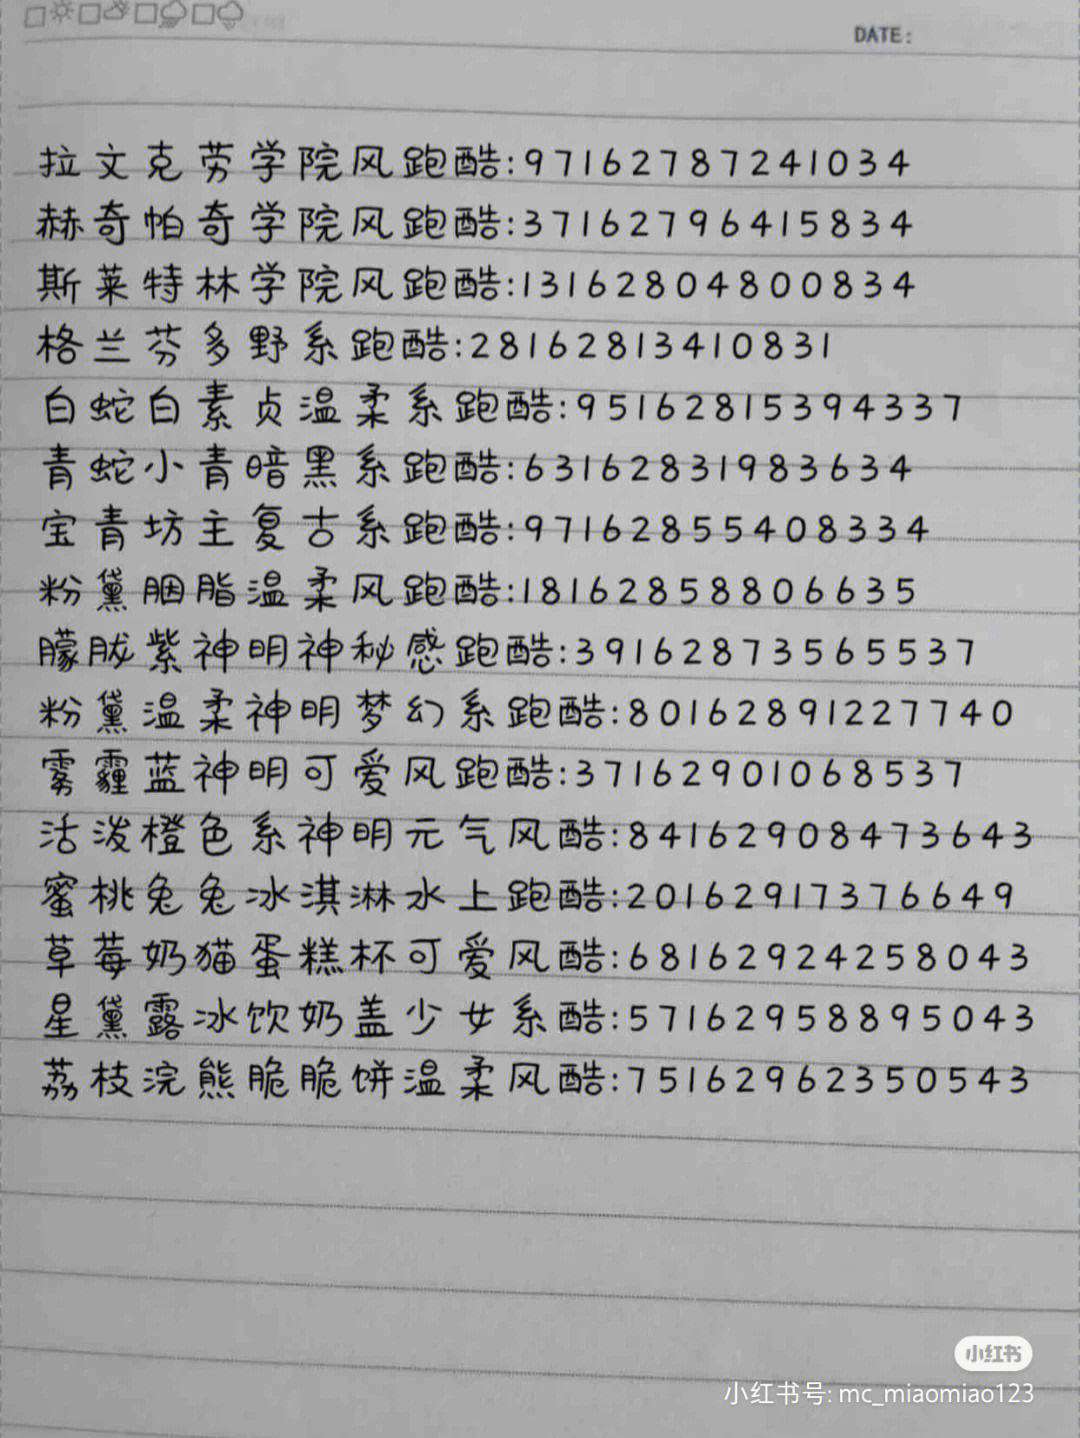 DATE:
拉文克劳学院风跑酷:97162787241034
赫奇帕奇学院风跑酷:37162796415834
斯莱特林学院风跑酷:13162804800834
格兰芬多野系跑酷:28162813410831
白蛇白素贞温柔系跑酷:95162815394337
青蛇小青暗黑系跑酷:63162831983634
宝青坊主复古系跑酷:97162855408334
粉黛胭脂温柔风跑酷:18162858806635
朦胧紫神明神秘感跑酷:39162873565537
粉黛温柔神明梦幻系跑酷:80162891227740
雾霾蓝神明可爱风跑酷:37162901068537
活泼橙色系神明元气风酷:84162908473643
蜜桃兔兔冰淇淋水上跑酷:20162917376649
草莓奶猫蛋糕杯可爱风酷:68162924258043
星黛露冰饮奶盖少女系酷:57162958895043
荔枝浣熊脆脆饼温柔风酷:75162962350543
小红书
小红书号: mc_miaomiao123